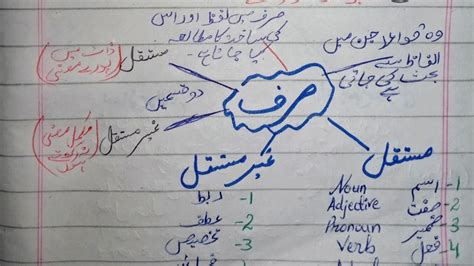 صرف میں لفظ اور اس
کی ساخت کا مطالعہ
کیا جاتا ہے۔
وہ قواعد جن میں
الفاظ سے
بحث کی جاتی
ہے
مستقل
ذات میں
پورے معنی
دو قسمیں
صرف
غیر مستقل
مکمل معنی
مستقل
غیر مستقل
1- اسم Noun
2- صفت Adjective
3- ضمیر Pronoun
4- فعل Verb
1- ربط
2- عطف
3- تخصیص